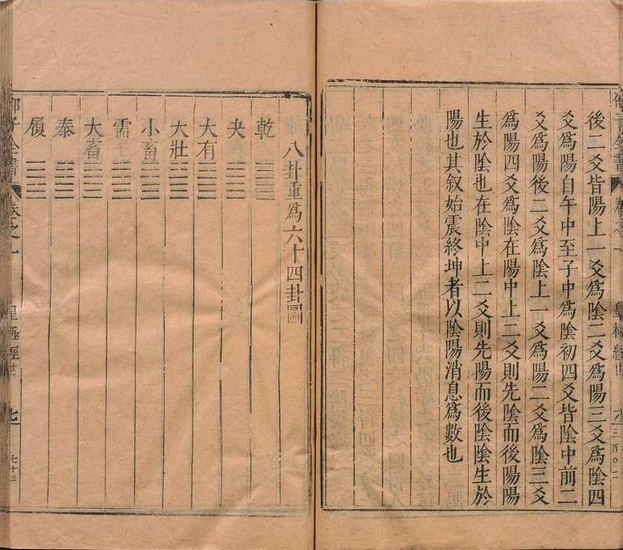 後二爻皆陽上一爻爲陰二爻爲陽三爻爲陰四
爻爲陽自午中至子中爲陰初四爻皆陰中前二
爻爲陽後二爻爲陰上一爻爲陽二爻爲陰三爻
爲陽四爻爲陰在陽中上二爻則先陰而後陽陽
生於陰也在陰中上二爻則先陽而後陰陰生於
陽也其叙始震終坤者以陰陽消息爲數也
八卦重爲六十四卦圖
乾
夬
大有
大壯
小畜
需
大畜
泰
履
子全書
卷之一
皇極經世